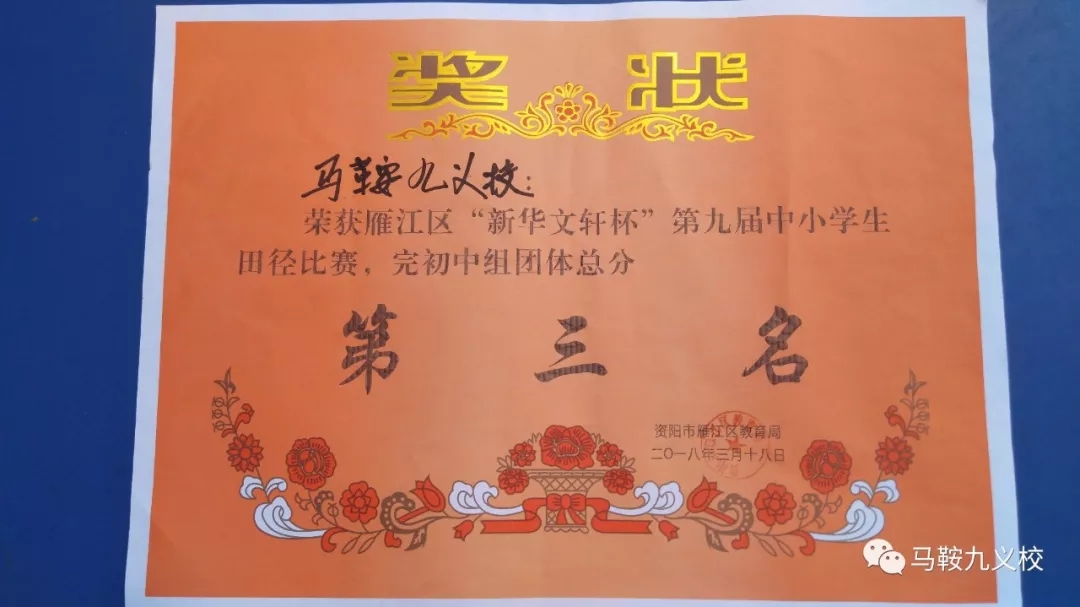 奖状
马鞍九义校：
荣获雁江区“新华文轩杯”第九届中小学生
田径比赛，完初中组团体总分
第三名
资阳市雁江区教育局
二〇一八年三月十八日
马鞍九义校